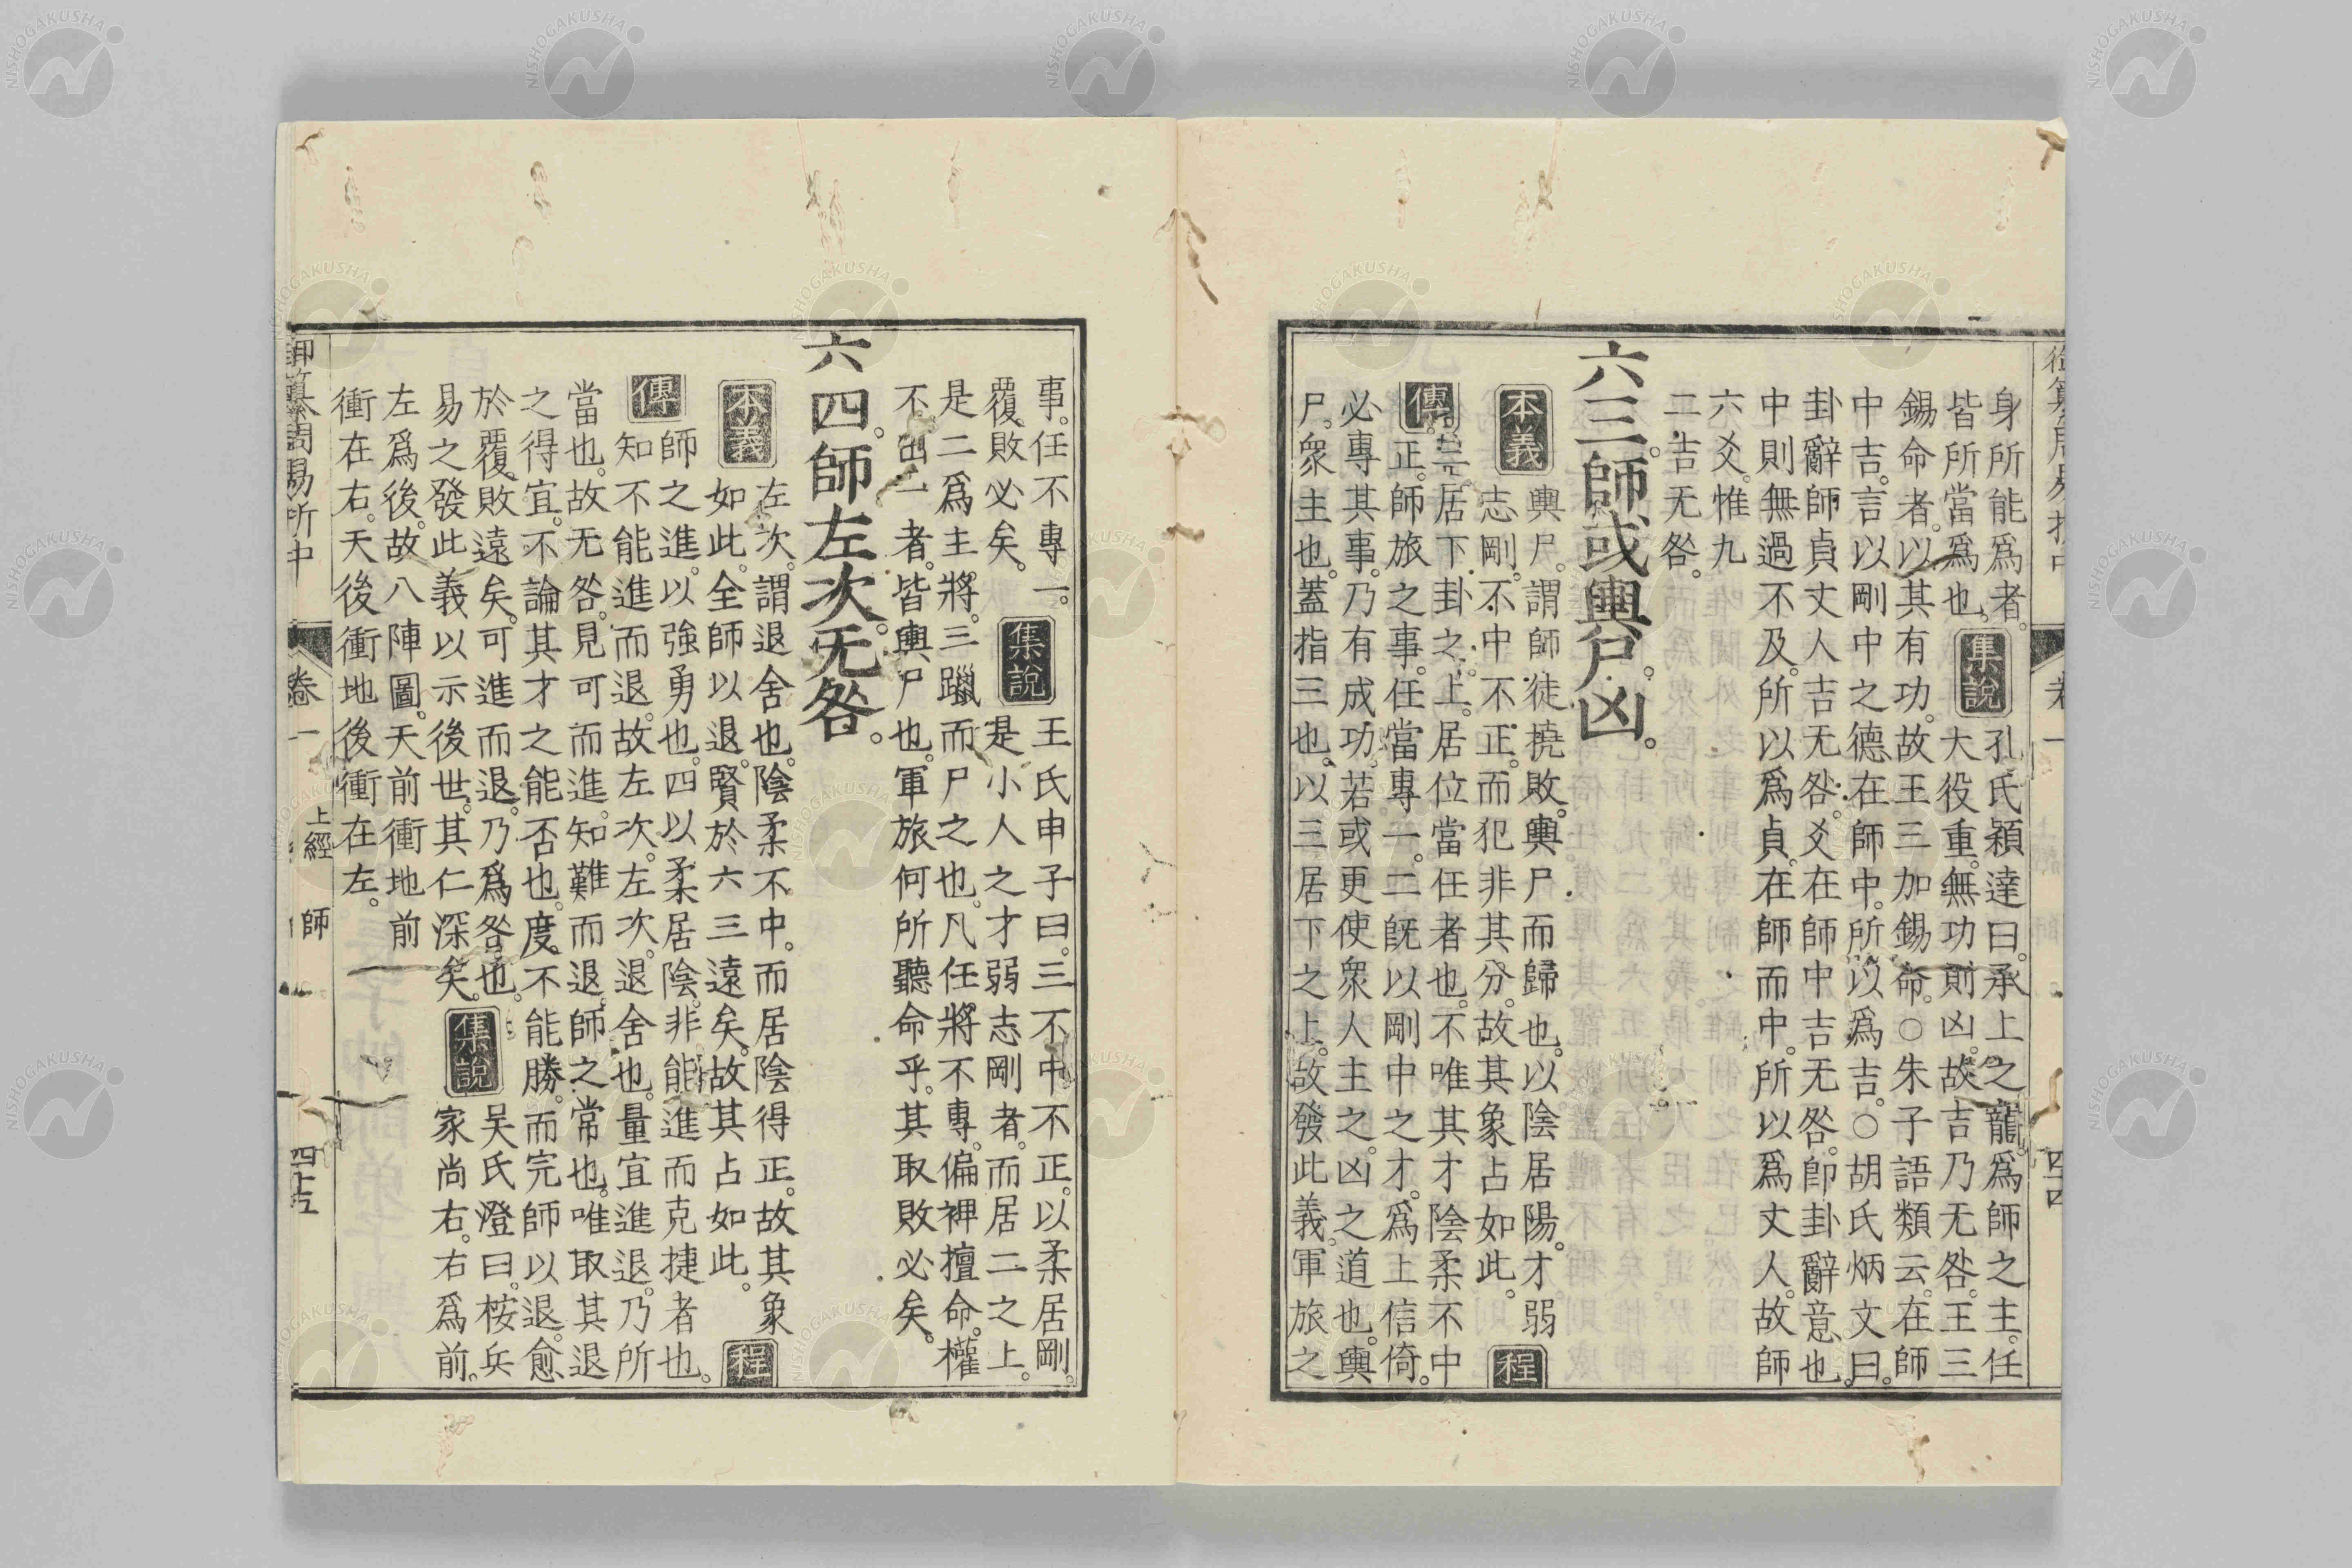 御纂周易折中 卷一 四十四
身所能爲者。
皆所當爲也。
集說
孔氏穎達曰。承上之寵。爲師之主。任
大役重。無功則凶。故吉乃无咎。王三
錫命者。以其有功。故王三加錫命。○朱子語類云。在師
中吉。言以剛中之德在師中。所以爲吉。○胡氏炳文曰。
卦辭師貞丈人吉无咎。爻在師中吉无咎。卽卦辭意也。
中則無過不及。所以爲貞。在師而中。所以爲丈人。故師
六爻。惟九
二吉无咎。
六三。師或輿尸。凶。
本義
輿尸。謂師徒撓敗。輿尸而歸也。以陰居陽。才弱
志剛。不中不正。而犯非其分。故其象占如此。
程
傳
三居下卦之上。居位當任者也。不唯其才陰柔不中
正。師旅之事。任當專一。二旣以剛中之才。爲上信倚。
必專其事。乃有成功。若或更使衆人主之。凶之道也。輿
尸。衆主也。蓋指三也。以三居下之上。故發此義。軍旅之
事。任不專一。
覆敗必矣。
集說
王氏申子曰。三不中不正。以柔居剛。
是小人之才弱志剛者。而居二之上。
是二爲主將。三躐而尸之也。凡任將不專。偏裨擅命。權
不出一者。皆輿尸也。軍旅何所聽命乎。其取敗必矣。
六四。師左次。无咎。
本義
左次。謂退舍也。陰柔不中。而居陰得正。故其象
如此。全師以退。賢於六三遠矣。故其占如此。
程
傳
師之進。以強勇也。四以柔居陰。非能進而克捷者也。
知不能進而退。故左次。左次。退舍也。量宜進退。乃所
當也。故无咎。見可而進。知難而退。師之常也。唯取其退
之得宜。不論其才之能否也。度不能勝。而完師以退。愈
於覆敗遠矣。可進而退。乃爲咎也。
易之發此義以示後世。其仁深矣。
集說
吳氏澄曰。桉兵
家尚右。右爲前。
左爲後。故八陣圖。天前衝地前
衝在右。天後衝地後衝在左。
御纂周易折中 卷一 上經 師 四十五
NISHOGAKUSHA